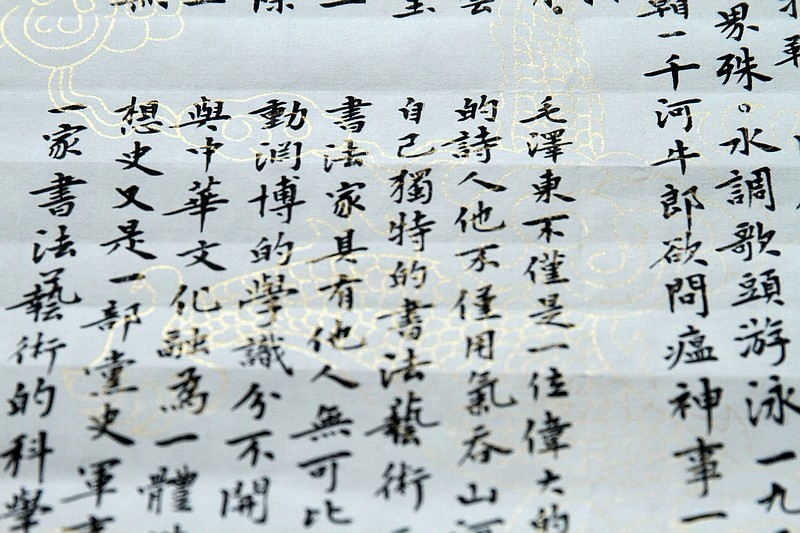 界殊。水調歌頭游泳一九
一千河牛郎欲問瘟神事一
毛澤東不僅是一位偉大的
的詩人他不僅用氣吞山
自己獨特的書法藝術
書法家具有他人無可比
動淵博的學識分不開
與中華文化融為一體
想史又是一部黨史軍
一家書法藝術的科學